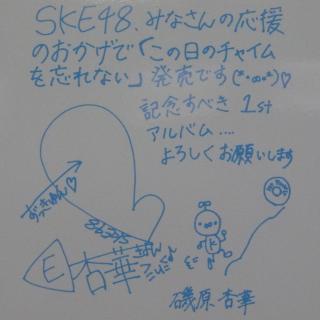 SKE48、みなさんの応援
のおかげで「この日のチャイム
を忘れない」発売です(*・ω・*)♡
記念すべき 1st
アルバム....
よろしくお願いします
ずっきゅん♡
E 杏華
K
磯原杏華